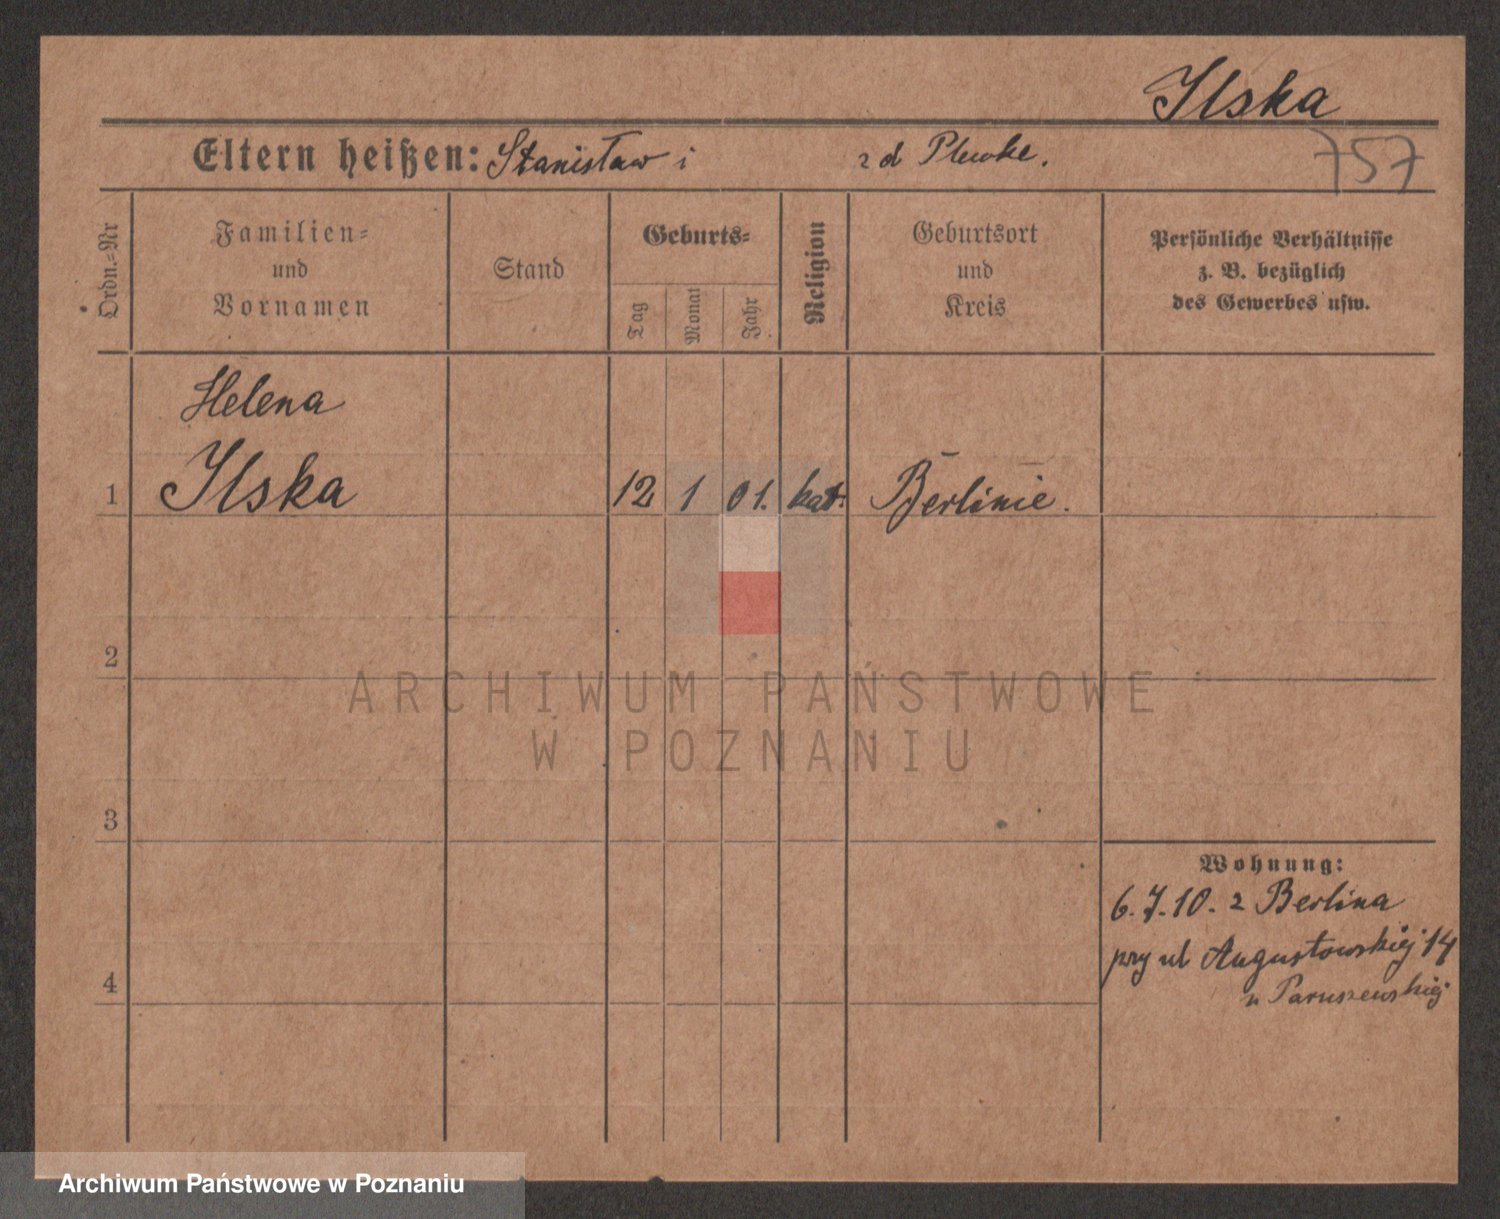 Ilska
Eltern heißen: Stanisław i z d Plewke.
757
Ordn.-Nr
Familien-
und
Vornamen
Stand
Geburts-
Tag
Monat
Jahr
Religion
Geburtsort
und
Kreis
Persönliche Verhältnisse
z. B. bezüglich
des Gewerbes usw.
Helena
1 Ilska 12 1 01. kat. Berlinie.
2
ARCHIWUM PAŃSTWOWE
W POZNANIU
3
Wohnung:
6.7.10. z Berlina
przy ul Augustowskiej 14
u Paruszewskiej
4
Archiwum Państwowe w Poznaniu